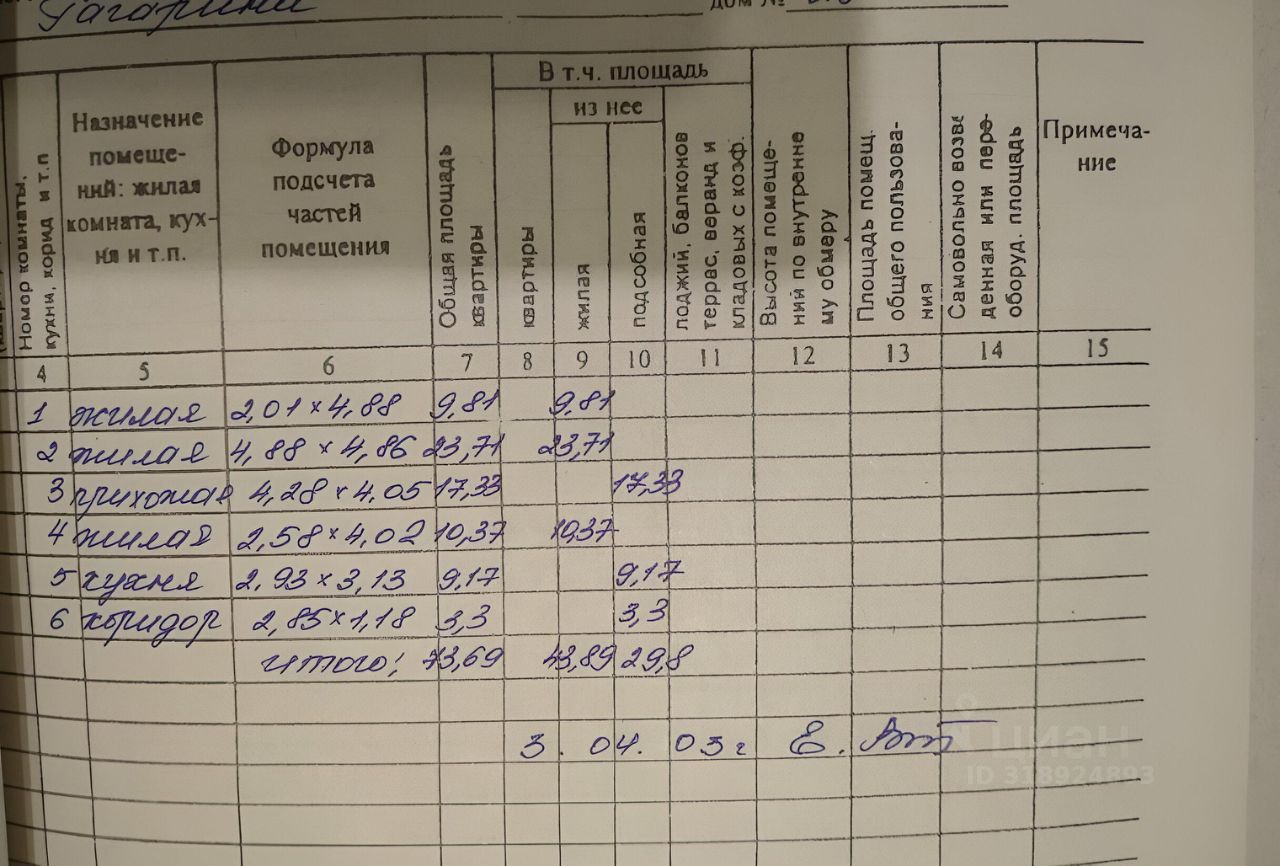 Гагарина дом №
Номер комнаты, кухни, корид и т.п
Назначение помеще-
ний: жилая
комната, кух-
ня и т.п.
Формула
подсчета
частей
помещения
Общая площадь
квартиры
В т.ч. площадь
квартиры
из нее
жилая
подсобная
лоджий, балконов
террас, веранд и
кладовых с коэф.
Высота помеще-
ний по внутренне
му обмеру
Площадь помещ.
общего пользова-
ния
Самовольно возве
денная или пере-
оборуд. площадь
Примеча-
ние
4 5 6 7 8 9 10 11 12 13 14 15
1 жилая 2,01 × 4,88 9,81 9,81
2 жилая 4,88 × 4,86 23,71 23,71
3 прихожая 4,28 × 4.05 17,33 17,33
4 жилая 2,58 × 4,02 10,37 10,37
5 кухня 2,93 × 3,13 9,17 9,17
6 коридор 2,85 × 1,18 3,3 3,3
итого: 73,69 43,89 29,8
3. 04. 03 г Е.
ЦИАН
ID 318924893